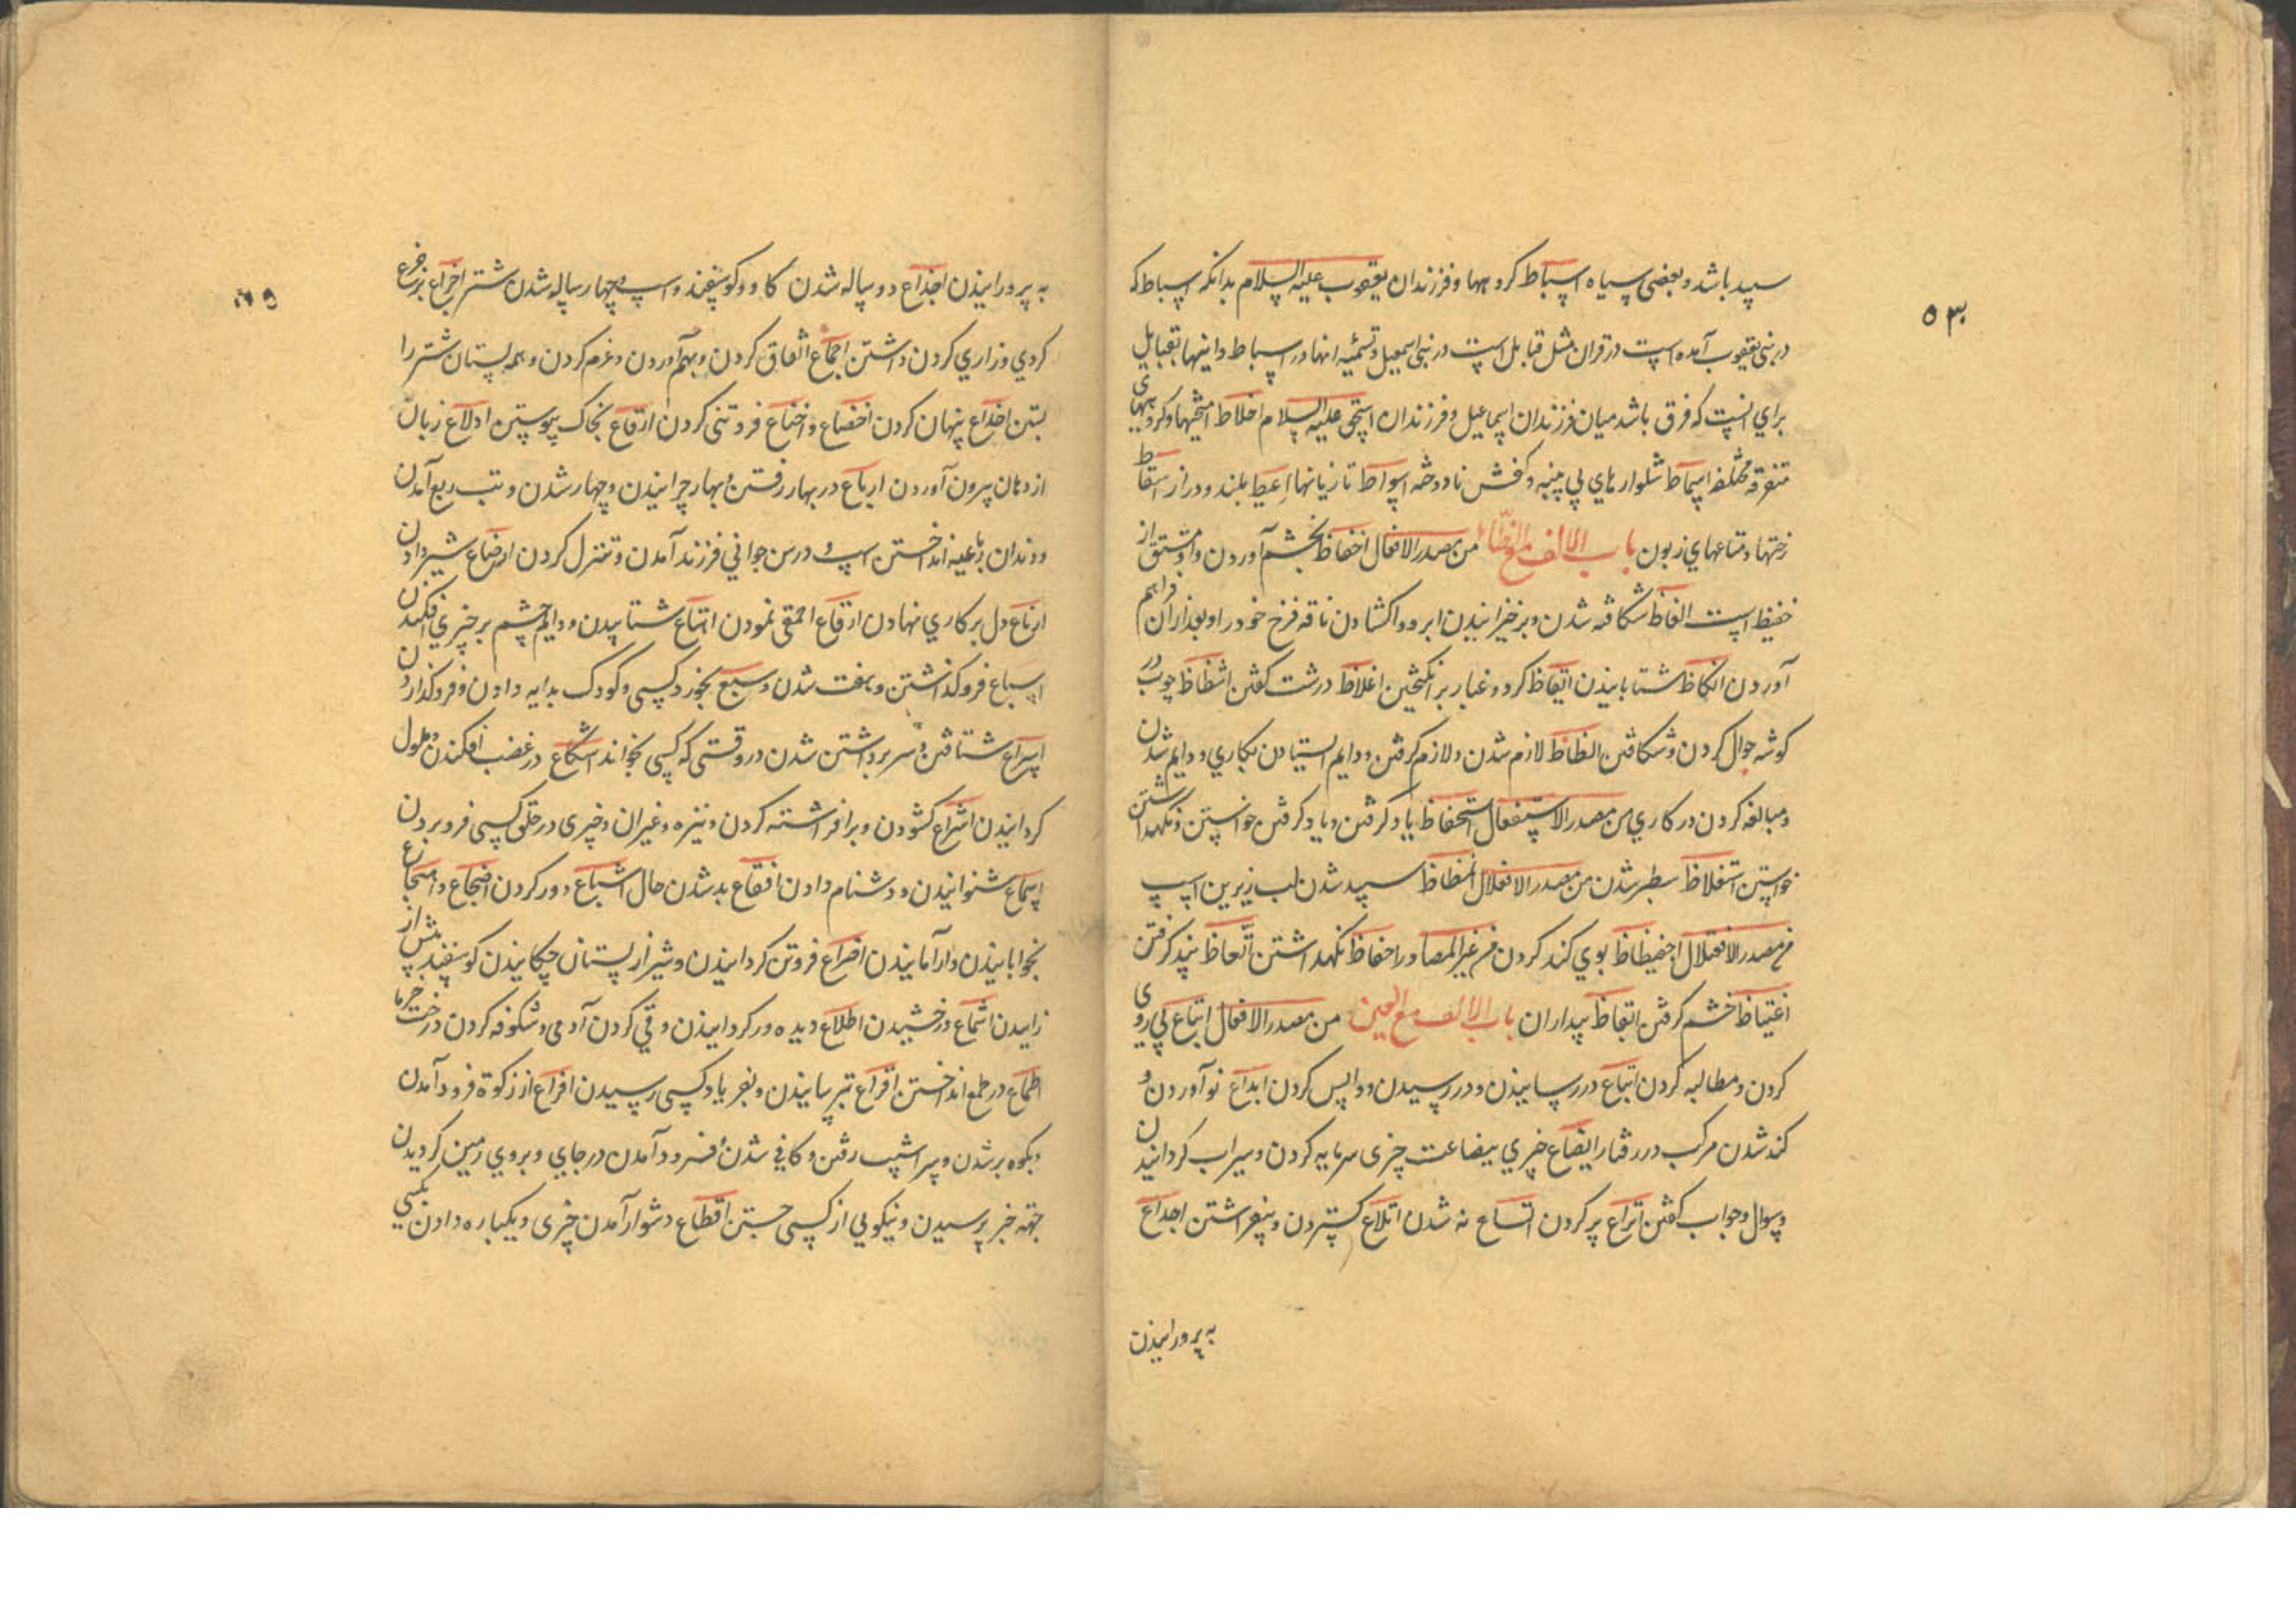 سپید باشد و بعضی سیاه اسباط کروهها و فرزندان یعقوب علیه السلام بدانکه اسباط که
در بنی یعقوب آمده است در قران مثل قبایل است در بنی اسمعیل و تسمیه اینها در اسباط و اینها بقبایل
برای انست که فرق باشد میان فرزندان اسماعیل و فرزندان اسحق علیه السلام اخلاط امیختهها و کروههای
متفرقه مختلفه اسماط شلوارهای بی پنبه و کفش نادوخته اسواط تازیانها اعیط بلند و دراز اسقاط
رختها و متاعهای زبون باب الالف مع الظاء من مصدر الافعال احفاظ بخشم آوردن و او مشتق از
حفیظ است الفاظ شکافته شدن و برخیزانیدن ابر و واکشادن ناقه فرج خود را و بعد ازان فراهم
آوردن انکاظ شتابانیدن ایقاظ کرد و غبار برانکیختن اغلاظ درشت کفتن اشظاظ چوب در
کوشه جوال کردن و شکافتن الظاظ لازم شدن و لازم کرفتن و دایم استیادن بکاری و دایم شدن
و مبالغه کردن در کاری من مصدر الاستفعال استحفاظ یاد کرفتن و یاد کرفتن خواستن و نکهداشتن
خواستن استغلاظ سطبر شدن من مصدر الافعلال المظاظ سپید شدن لب زیرین اسپ
من مصدر الافتعلال اجفیظاظ بوی کند کردن من غیر المصادر احفاظ نکهداشتن اتعاظ پند کرفتن
اغتیاظ خشم کرفتن ایقاظ بیداران باب الالف مع العین من مصدر الافعال اتباع پی روی
کردن و مطالبه کردن اتباع در رسانیدن و در رسیدن و واپس کردن ابداع نو آوردن و
کند شدن مرکب در رفتار ابضاع چیزی بیضاعت چیزی سرمایه کردن و سیراب کردانیدن
و سوال و جواب کفتن اتراع پر کردن اتساع نه شدن اتلاع کستردن و بیفراشتن اجداع
به پرورانیدن
۵۳
به پرورانیدن اجذاع دو ساله شدن کاو و کوسفند و اسپ و چهار ساله شدن شتر اجراع بزجرع
کردی و زاری کردن داشتن اجماع اتفاق کردن و بهم آوردن و عزم کردن و همه پستان شتر را
بستن اخداع پنهان کردن اخضاع و اخناع فروتنی کردن ادقاع بخاک پیوستن ادلاع زبان
از دهان بیرون آوردن ارباع در بهار رفتن و بهار چرانیدن و چهار شدن و تب ربع آمدن
و دندان رباعیه انداختن اسپ و در سن جوانی فرزند آمدن و تنزل کردن ارضاع شیر دادن
ازماع دل بر کاری نهادن ارقاع احمقی نمودن اهتاع شتابیدن و دایم چشم بر چیزی افکندن
اسباع فرو کذاشتن و هفت شدن و سبع بخورد کسی و کودک بدایه دادن و فرو کذاردن
اسراع شتافتن و سر برداشتن شدن در وقتی که کسی بخواند اشکاع در غضب افکندن و ملول
کردانیدن اشراع کشودن و برافراشته کردن و نیزه و غیران و چیزی در حلق کسی فرو بردن
اسماع شنوانیدن و دشنام دادن افقاع بد شدن حال اشساع دور کردن اضجاع و امجاع
بخوابانیدن و آرامانیدن اضراع فروتن کردانیدن و شیر از پستان چکانیدن کوسفند پیش از
زاییدن اشماع درخشیدن اطلاع دیده ور کردانیدن و قی کردن آدمی و شکوفه کردن درخت خرما
اطماع در طمع انداختن افزاع ترسانیدن و بفریاد کسی رسیدن افراع از زکوة فرود آمدن
و بکوه بر شدن و سراشیب رفتن و کافی شدن فرود آمدن در جای و بروی زمین کردیدن
جهة خبر پرسیدن و نیکویی از کسی جستن اقطاع دشوار آمدن چیزی و یکباره دادن بکسی